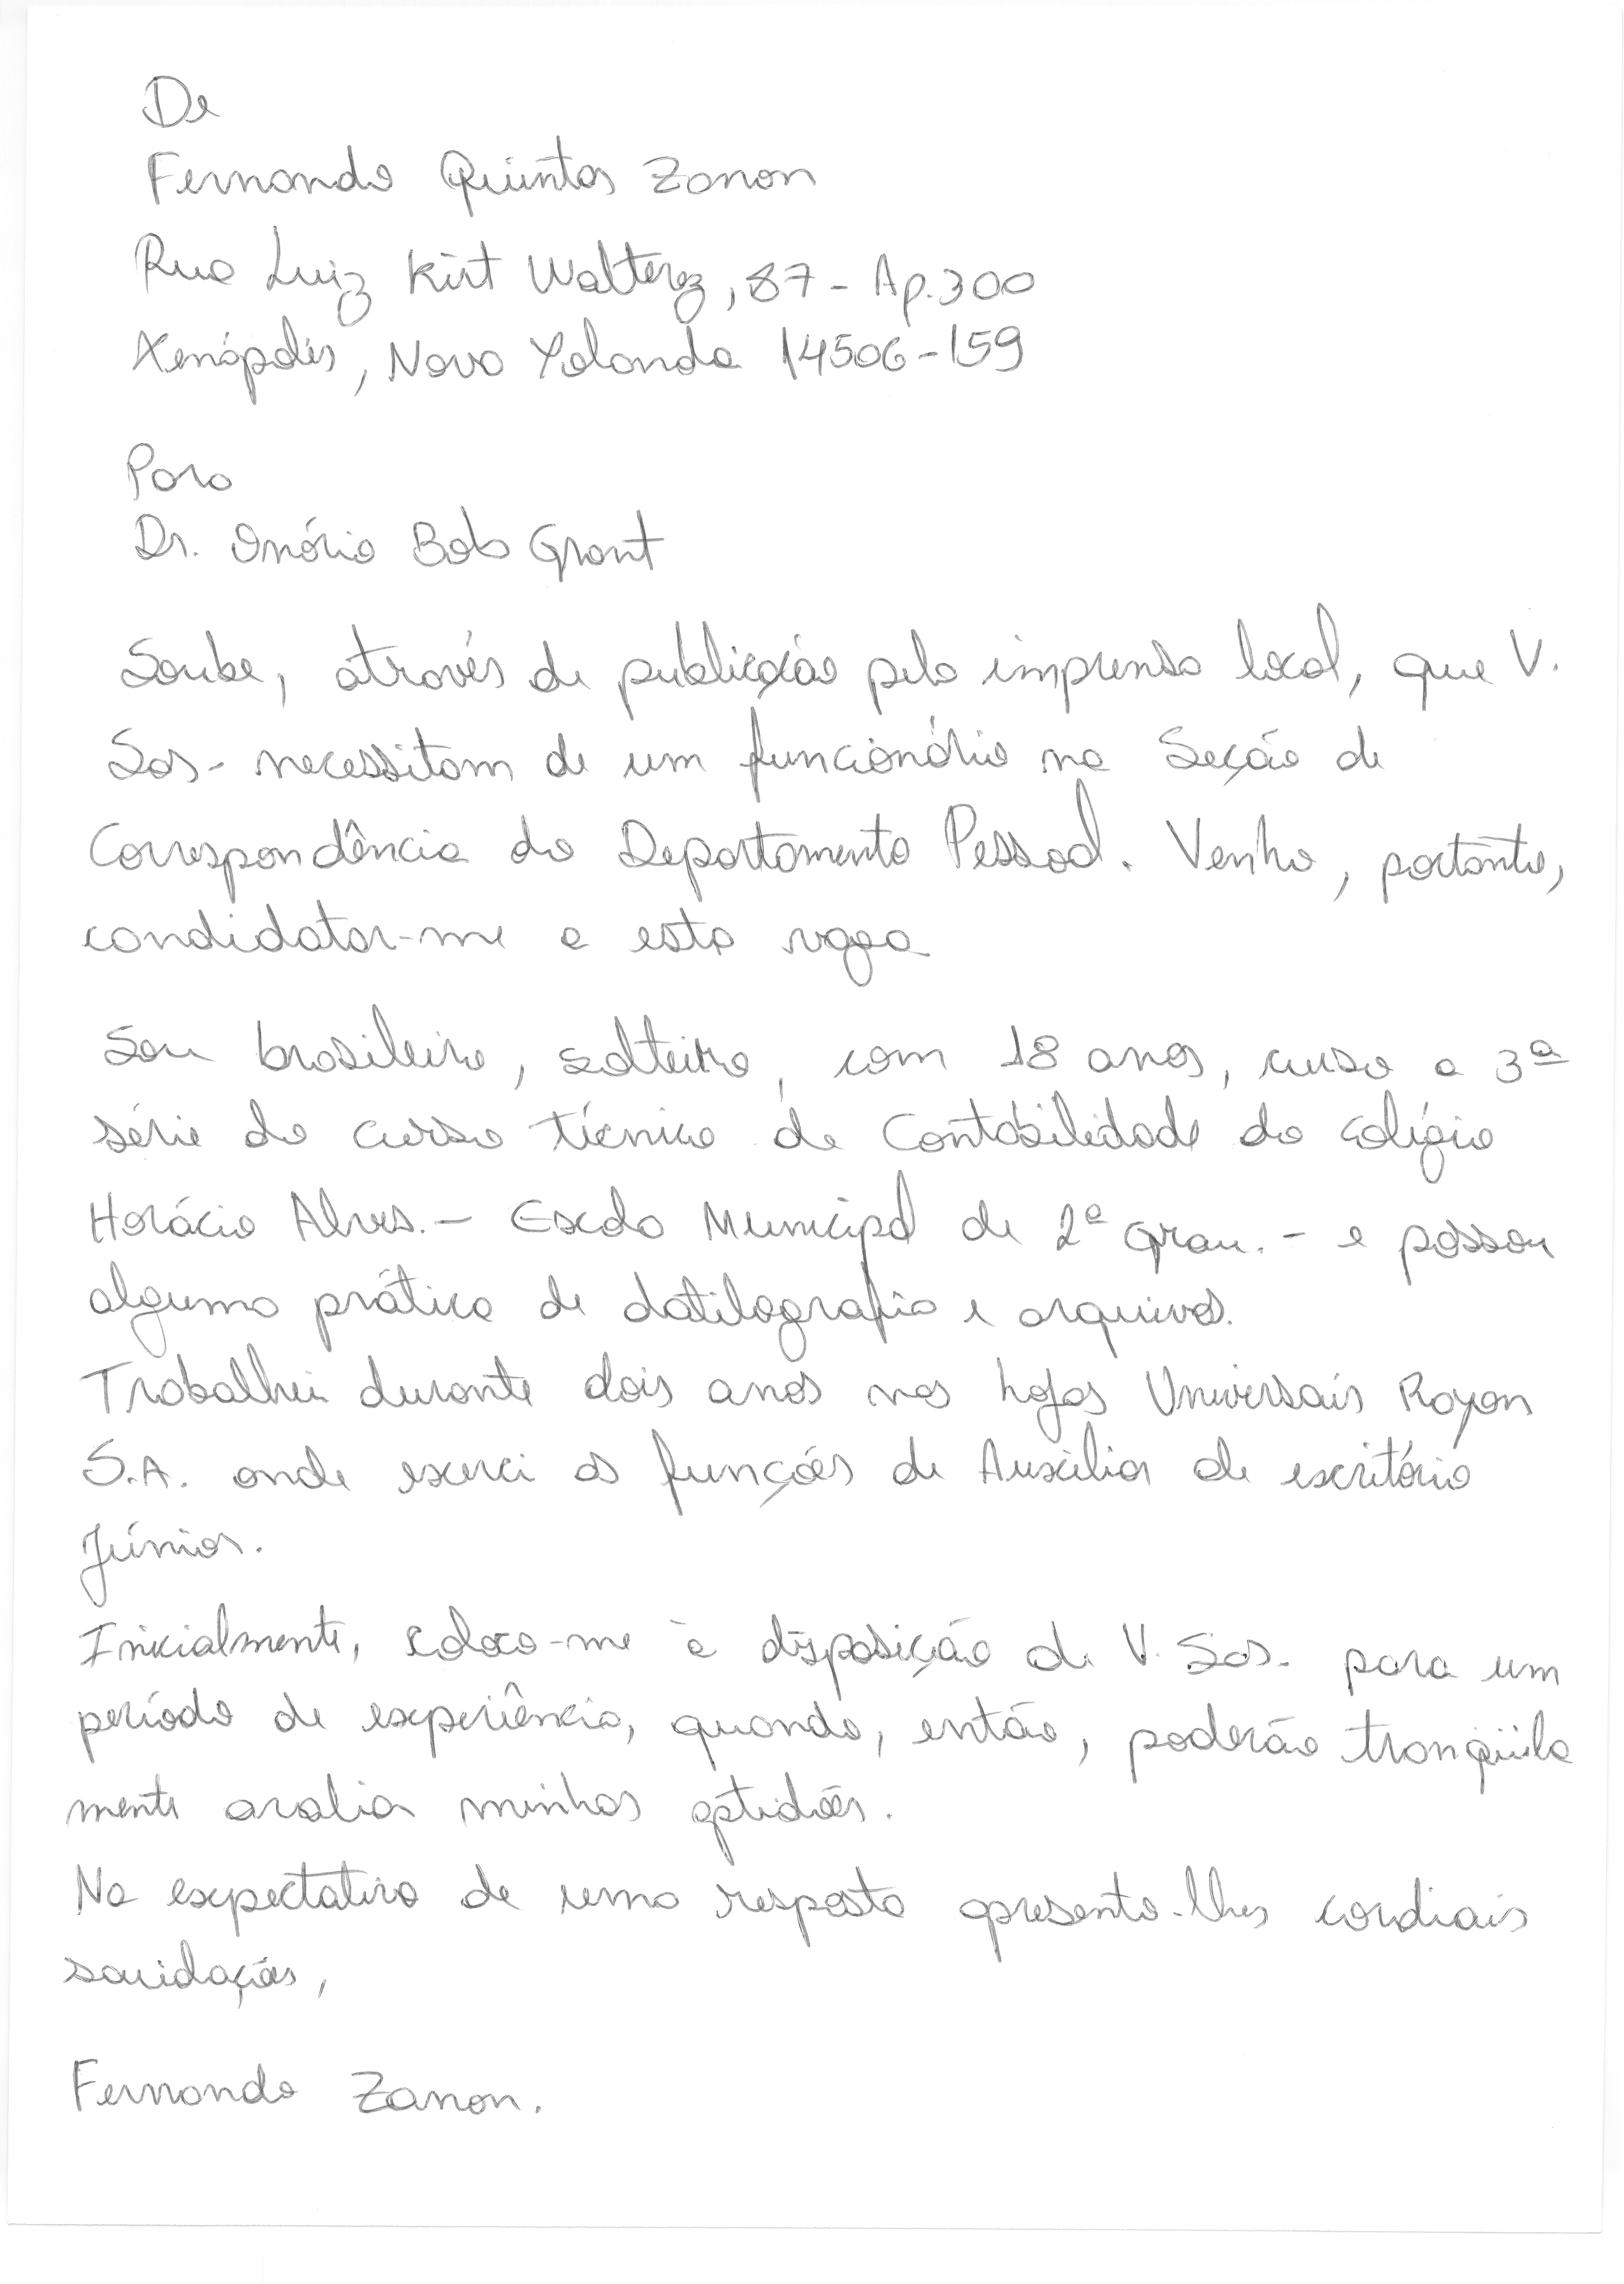 De
Fernando Quintas Zanon
Rua Luiz Kirt Walterz, 87 - Ap. 300
Xenópolis, Nova Yolanda 14506-159
Para
Dr. Onório Bob Grant
Soube, através de publicação pela imprensa local, que V.
Sas- necessitam de um funcionário na Seção de
Correspondência do Departamento Pessoal. Venho, portanto,
candidatar-me a esta vaga
Sou brasileiro, solteiro, com 18 anos, curso a 3ª
série do curso técnico de Contabilidade do Colégio
Horácio Alves. - Escola Municipal de 2ª Grau. - e possou
alguma prática de datilografia e arquivos.
Trabalhei durante dois anos nas hojas Universais Royon
S.A. onde exerci as funções de Auxiliar de escritório
Júnior.
Inicialmente, coloco-me à disposição de V. Sas. para um
período de experiência, quando, então, poderão tranqüila
mente avaliar minhas aptidões.
Na expectativa de uma resposta apresento-lhes cordiais
saudações,
Fernando Zanon.